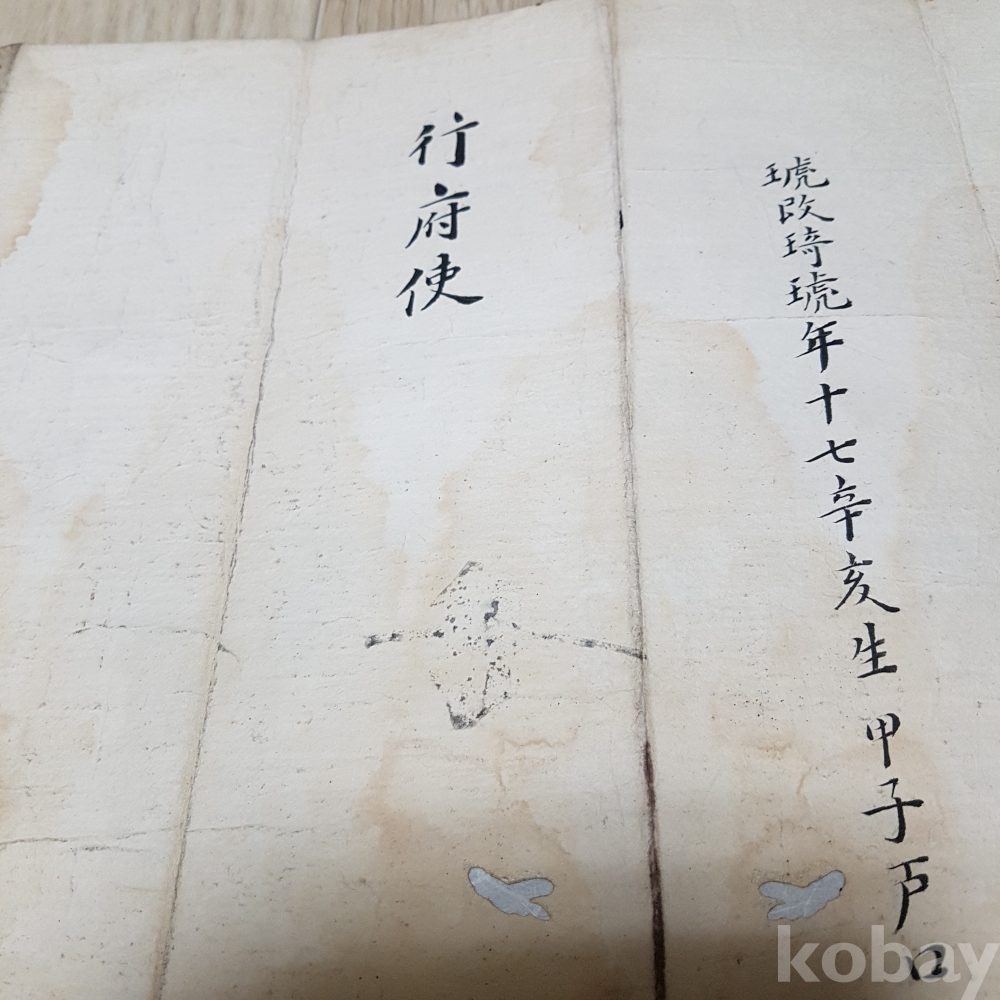 琥改琦琥年十七辛亥生甲子戸口
行府使
kobay